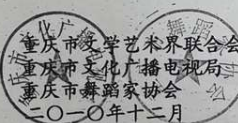 重庆市文学艺术界联合会
重庆市文化广播电视局
重庆市舞蹈家协会
二〇一〇年十二月